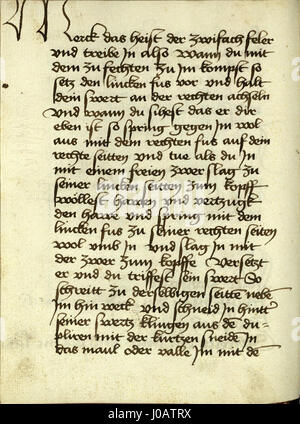 Merck das heist der zwifach feler
vnd treibe in also Wann du mit
dem zu fechten zu Im kompst so
setz den lincken fus vor und halt
dein swert an der rechten achseln
Vnd wann du sihest das er dir
eben ist so spring gegen Im wol
aus mit dem rechten fus auf dein
rechte seitten vnd tue als du In
mit einem freien zwer slag zu
seiner lincken seitten zum kopff
wöllest hawen vnd vertzugk
den hawe vnd spring mit dem
lincken fus zu seiner rechten seiten
wol vmb In vnd slag In mit
der zwer zum kopffe Versetzt
er vnd du triffest sein swert So
schreitt zu derselbigen seitte nebe
Im hin weck vnd schneid In hintter
seiner swertz klingen aus de du-
pliren mit der kurtzen sneide In
das maul oder valle Im mit de
alamy
alamy stock photo
JOATRX
www.alamy.com